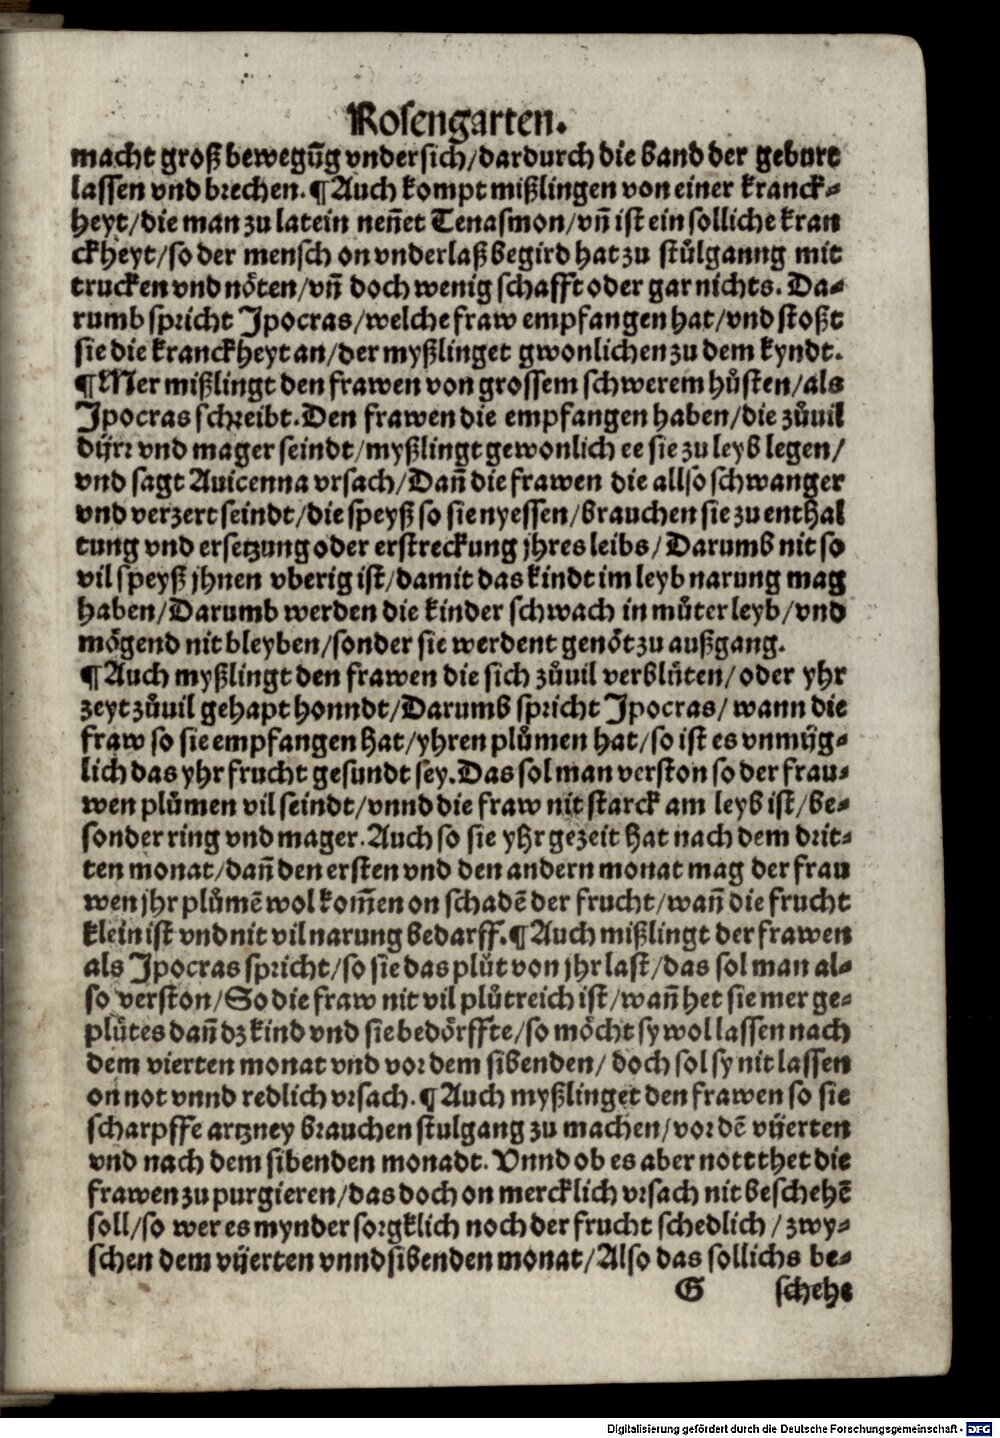 Rosengarten.
macht groß bewegūg vndersich/dardurch die band der geburt
lassen vnd brechen. ¶ Auch kompt mißlingen von einer kranck⸗
heyt/die man zu latein neñet Tenasmon/vñ ist ein solliche kran
ckheyt/so der mensch on vnderlaß begird hat zu stůlganng mit
trucken vnd nöten/vñ doch wenig schafft oder gar nichts. Da⸗
rumb spricht Ipocras/welche fraw empfangen hat/vnd stoßt
sie die kranckheyt an/der myßlinget gwonlichen zu dem kyndt.
¶ Mer mißlingt den frawen von grossem schwerem hůsten/als
Ipocras schreibt. Den frawen die empfangen haben/die zůuil
dÿrr vnd mager seindt/myßlingt gewonlich ee sie zu leyb legen/
vnd sagt Auicenna vrsach/Dañ die frawen die allso schwanger
vnd verzert seindt/die speyß so sie nyessen/brauchen sie zu enthal
tung vnd ersetzung oder erstreckung jhres leibs/Darumb nit so
vil speyß jhnen vberig ist/damit das kindt im leyb narung mag
haben/Darumb werden die kinder schwach in můter leyb/vnd
mögend nit bleyben/sonder sie werdent genöt zu außgang.
¶ Auch myßlingt den frawen die sich zůuil verblůten/oder yhr
zeyt zůuil gehapt honndt/Darumb spricht Ipocras/wann die
fraw so sie empfangen hat/yhren plůmen hat/so ist es vnmÿg⸗
lich das yhr frucht gesundt sey. Das sol man verston so der frau⸗
wen plůmen vil seindt/vnnd die fraw nit starck am leyb ist/be⸗
sonder ring vnd mager. Auch so sie yhr gezeit hat nach dem drit⸗
ten monat/dañ den ersten vnd den andern monat mag der frau
wen jhr plůmē wol kom̄en on schadē der frucht/wañ die frucht
klein ist vnd nit vil narung bedarff. ¶ Auch mißlingt der frawen
als Ipocras spricht/so sie das plůt von jhr last/das sol man al⸗
so verston/So die fraw nit vil plůtreich ist/wañ het sie mer ge⸗
plůtes dañ dz kind vnd sie bedörffte/so möcht sy wol lassen nach
dem vierten monat vnd vor dem sibenden/doch sol sy nit lassen
on not vnnd redlich vrsach. ¶ Auch myßlinget den frawen so sie
scharpffe artzney brauchen stulgang zu machen/vor dē vÿerten
vnd nach dem sibenden monadt. Vnnd ob es aber nott thet die
frawen zu purgieren/das doch on mercklich vrsach nit beschehē
soll/so wer es mynder sorgklich noch der frucht schedlich/zwy⸗
schen dem vÿerten vnnd sibenden monat/Also das sollichs be⸗
G schehe
Digitalisierung gefördert durch die Deutsche Forschungsgemeinschaft - DFG